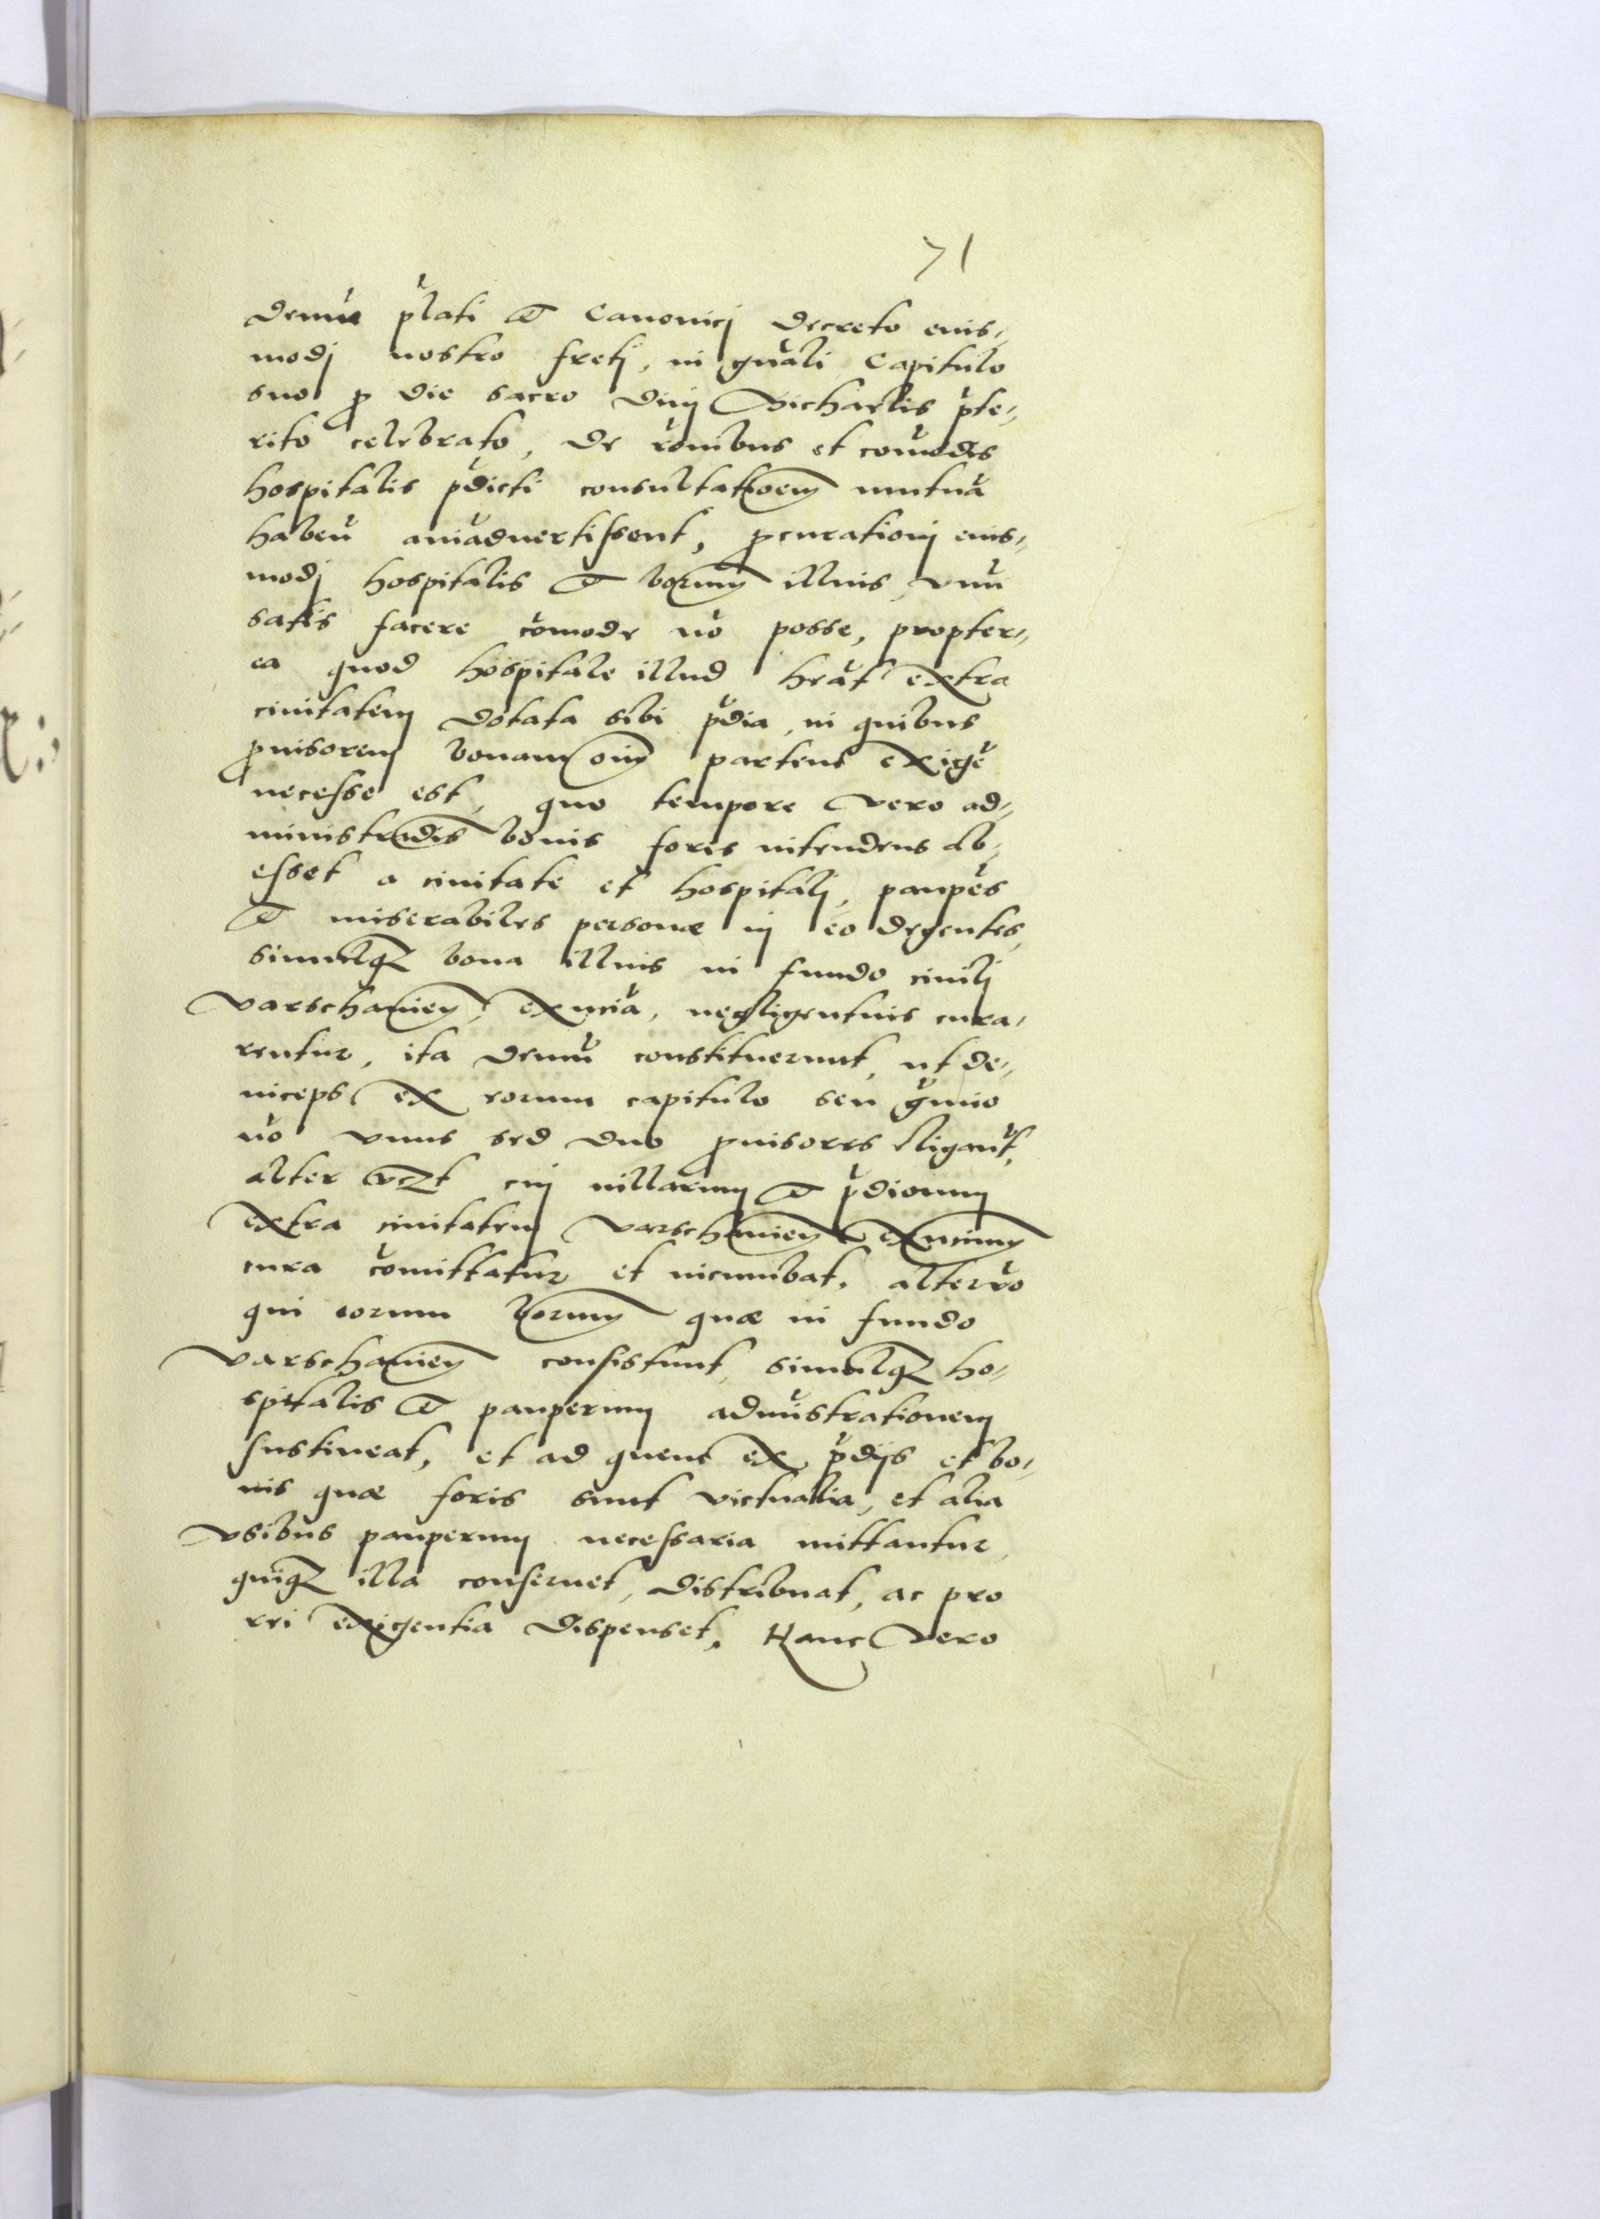 71
demũ p̃lati et Canonicj decreto eius-
modj nostro fretj, in gñali Capitulo
suo ꝓ die sacro Diuj Michaelis p̃te-
rito celebrato, de rõnibus et com̃odis
hospitalis p̃dicti consultationem mutuã
habeñ aniãduertissent, ꝓcurationj eius-
modj hospitalis et bonorum illius, vnũ
satis facere com̃ode nõ posse, propter-
ea quod hospitale illud hẽat extra
ciuitatem dotata sibi p̃dia, in quibus
ꝓuisorem bonam oĩno partem exigẽ
necesse est, quo tempore vero ad-
ministrãdis bonis foris intendens ab-
esset a ciuitate et hospitalj, paupẽs
et miserabiles personæ in eo degentes,
simulqꝫ bona illius in fundo ciuilj
Varschauien̄, exñtia, negligentius cura-
rentur, ita demũ constituerunt, ut de-
inceps ex eorum capitulo seu gr̃mio
nõ vnus sed duo ꝓuisores eligant̃,
alter vꝫt cuj uillarum et p̃diorum
extra ciuitatem Varschauien̄ exñtium
cura com̃ittatur et incumbat, alter võ
qui eorum bonorum quæ in fundo
Varschauien̄ consistunt, simulqꝫ ho-
spitalis et pauperum admĩstrationem
sustineat, et ad quem ex p̃dijs et bo-
nis quæ foris sunt victualia, et alia
vsibus pauperum necessaria mittantur,
quiqꝫ illa conseruet, distribuat, ac pro
rei exigentia dispenset, Hanc vero